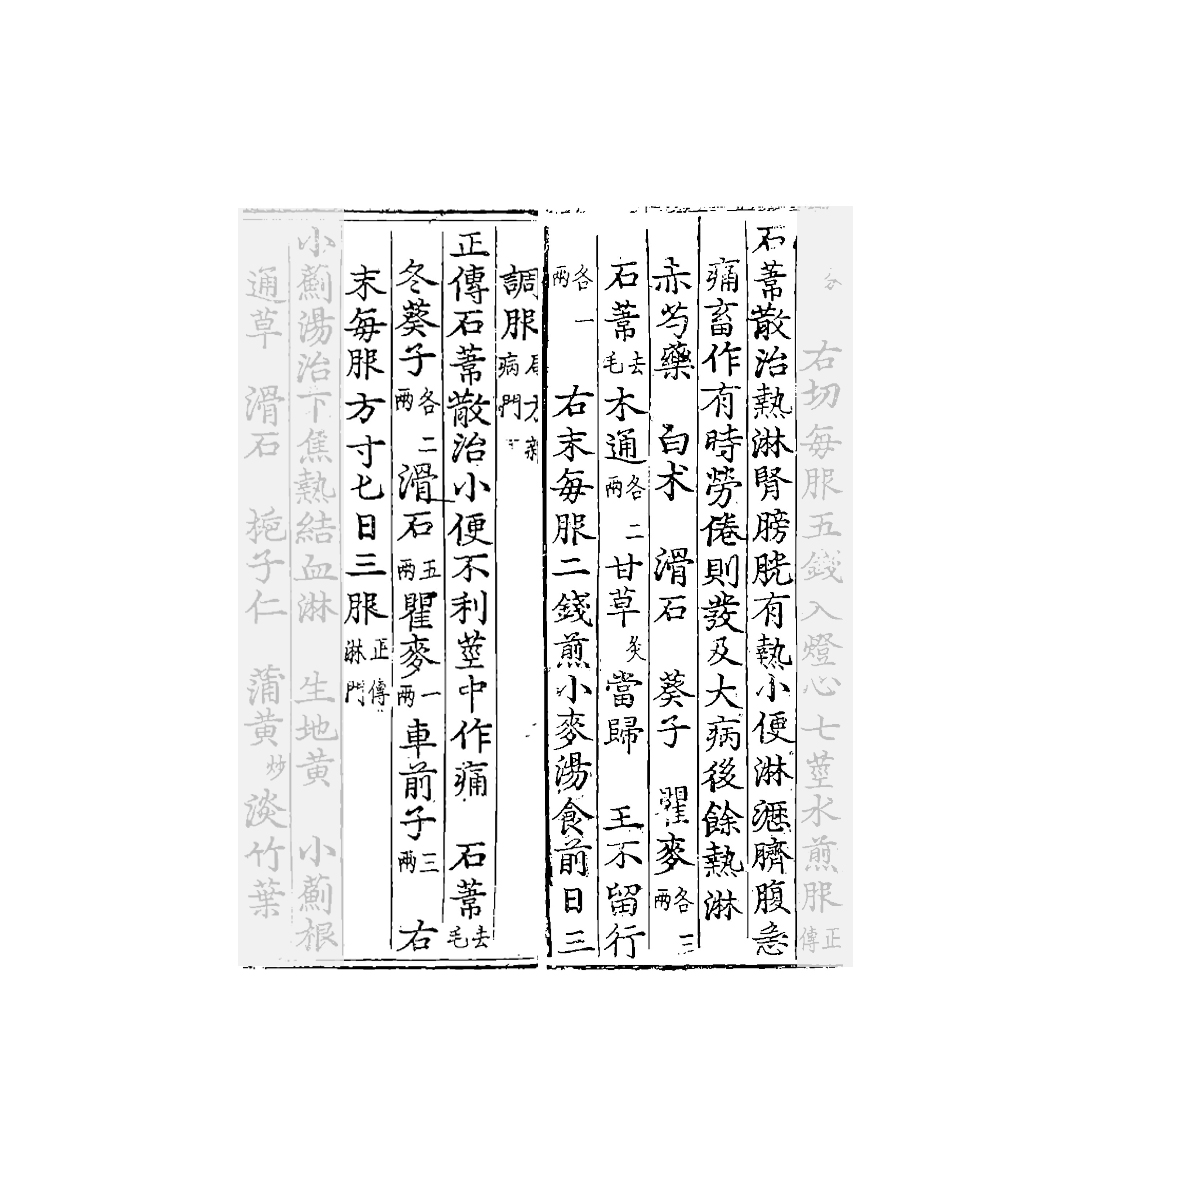 右切每服五錢入燈心七莖水煎服正傳
石葦散治熱淋腎膀胱有熱小便淋瀝臍腹急
痛畜作有時勞倦則發及大病後餘熱淋
赤芍藥 白朮 滑石 葵子 瞿麥各三兩
石葦去毛 木通各二兩 甘草炙 當歸 王不留行
各一兩 右末每服二錢煎小麥湯食前日三
調服局方雜病門
正傳石葦散治小便不利莖中作痛 石葦去毛
冬葵子各二兩 滑石五兩 瞿麥一兩 車前子三兩 右
末每服方寸匕日三服正傳淋門
小薊湯治下焦熱結血淋 生地黃 小薊根
通草 滑石 梔子仁 蒲黃炒 淡竹葉